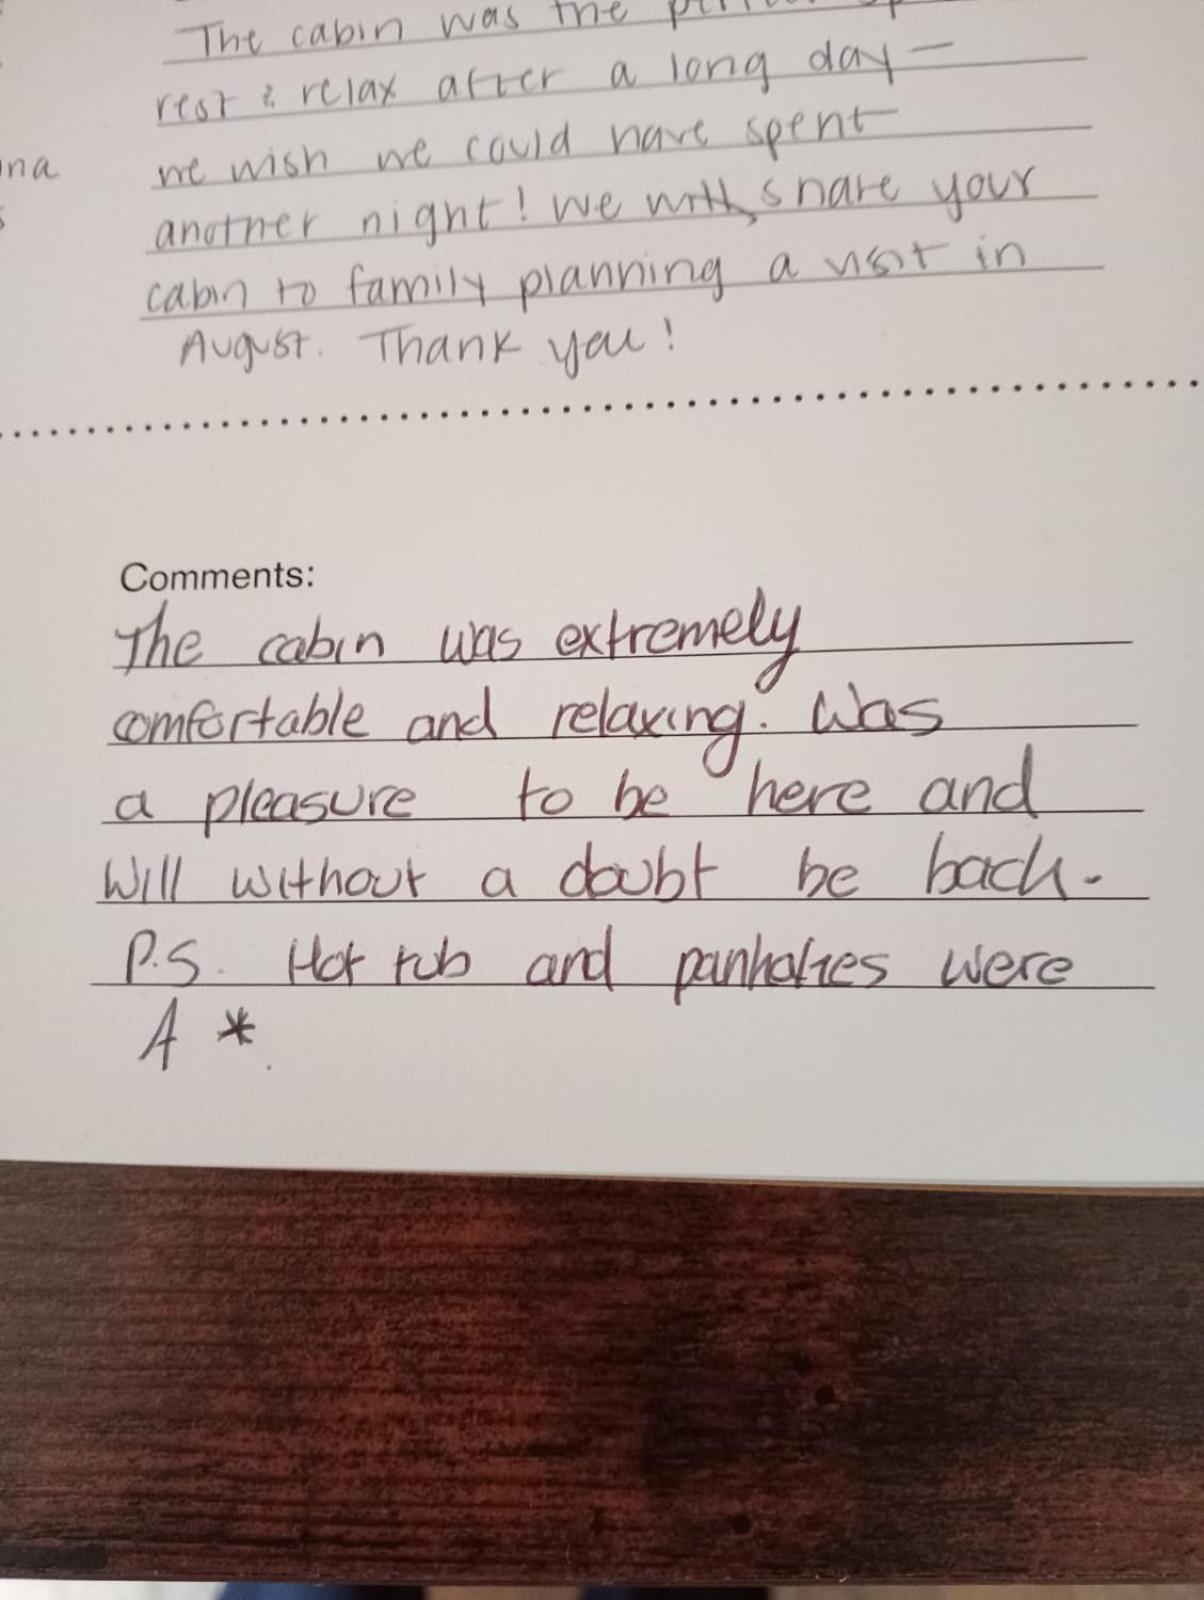 The cabin was the
rest & relax after a long day —
we wish we could have spent
another night! We will share your
cabin to family planning a visit in
August. Thank you!
na
s
Comments:
The cabin was extremely
comfortable and relaxing. Was
a pleasure to be here and
Will without a doubt be back.
P.S. Hot tub and were
A *.